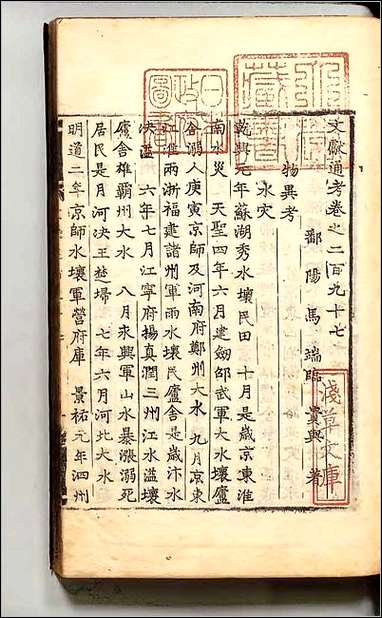 文獻通考卷之二百九十七
鄱陽馬端臨貴與著
物異考
水灾
乾興元年蘇湖秀水壞民田 十月是歲京東淮
南水災 天聖四年六月建劒邵武軍大水壞廬
舍溺人庚寅京師及河南府鄭州大水 九月京東
江淮兩浙福建諸州軍雨水壞民廬舍是歲汴水
決溢 六年七月江寧府揚真潤三州江水溢壞
廬舍雄霸州大水 八月永興軍山水暴漲溺死
居民是月河決王楚埽 七年六月河北大水
明道二年京師水壞軍營府庫 景祐元年泗州
淺草文庫
日本政府圖書